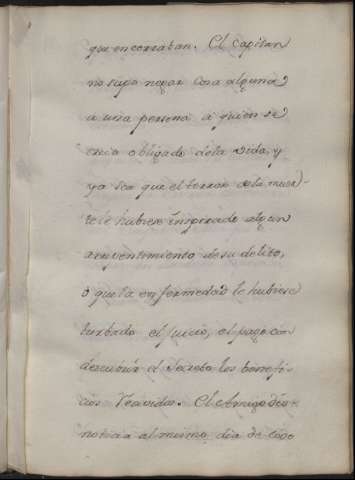 que encerraban. El Capitan
no supo negar cosa alguna
a una persona á quien se
creia obligado dela vida, y
ya sea que el terror dela muer-
te le hubiese inspirado algun
arrepentimiento de su delito,
o que la enfermedad le hubiese
turbado el juicio, el pago con
descubrir el Secreto los benefi-
cios recividos. El Amigo dió
noticia al mismo dia de todo